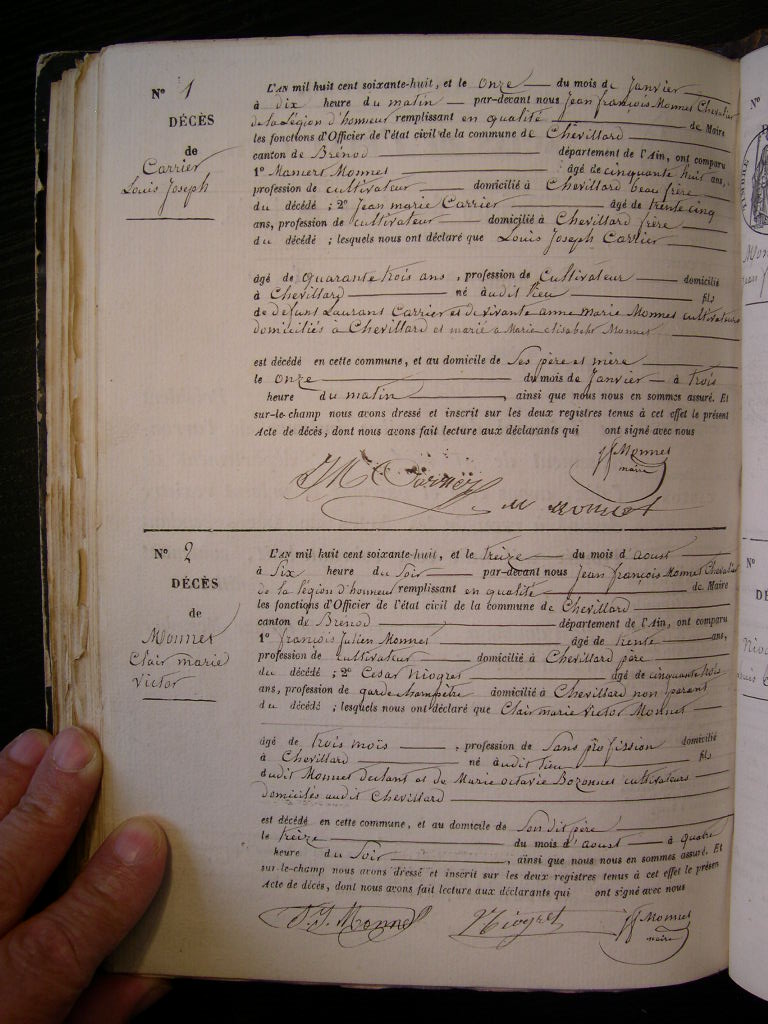 N° 1
DÉCÈS
de
Carrier
Louis Joseph
L'AN mil huit cent soixante-huit, et le onze du mois de Janvier
à dix heure du matin par-devant nous Jean françois Monnet Chevalier
de la Légion d'honneur remplissant en qualité de Maire
les fonctions d'Officier de l'état civil de la commune de Chevillard
canton de Brénod département de l'Ain, ont comparu
1° Monnet âgé de cinquante huit ans,
profession de cultivateur domicilié à Chevillard beau frère
du décédé ; 2° Jean marie Carrier âgé de trente cinq
ans, profession de cultivateur domicilié à Chevillard frère
du décédé ; lesquels nous ont déclaré que Louis Joseph Carrier
âgé de quarante trois ans , profession de Cultivateur domicilié
à Chevillard né audit lieu fils
de defunt Laurant Carrier et de vivante anne marie Monnet cultivateurs
domiciliés à Chevillard et marié a Marie elisabeht Monnet
est décédé en cette commune, et au domicile de Ses père et mère
le onze du mois de Janvier à trois
heure du matin , ainsi que nous nous en sommes assuré. Et
sur-le-champ nous avons dressé et inscrit sur les deux registres tenus à cet effet le présent
Acte de décès, dont nous avons fait lecture aux déclarants qui ont signé avec nous
Monnet
maire
J M Carrier
M monnet
N° 2
DÉCÈS
de
Monnet
Clair marie
Victor
L'AN mil huit cent soixante-huit, et le treize du mois d'aoust
à Six heure du Soir par-devant nous Jean françois Monnet Chevalier
de la légion d'honneur remplissant en qualité de Maire
les fonctions d'Officier de l'état civil de la commune de Chevillard
canton de Brenod département de l'Ain, ont comparu
1° françois Julien Monnet âgé de trente ans,
profession de cultivateur domicilié à Chevillard père
du décédé ; 2° Cesar Niogret âgé de cinquante trois
ans, profession de garde champêtre domicilié à Chevillard non parent
du décédé ; lesquels nous ont déclaré que Clair marie Victor Monnet
âgé de trois mois , profession de Sans profission domicilié
à Chevillard né audit lieu fils
dudit Monnet declarant et de Marie octavie Bozonnet cultivateurs
domiciliés audit Chevillard
est décédé en cette commune, et au domicile de Son dit père
le treize du mois d'aoust à quatre
heure du Soir , ainsi que nous nous en sommes assuré. Et
sur-le-champ nous avons dressé et inscrit sur les deux registres tenus à cet effet le présent
Acte de décès, dont nous avons fait lecture aux déclarants qui ont signé avec nous
Monnet
Niogret
Monnet
maire
N°
N°